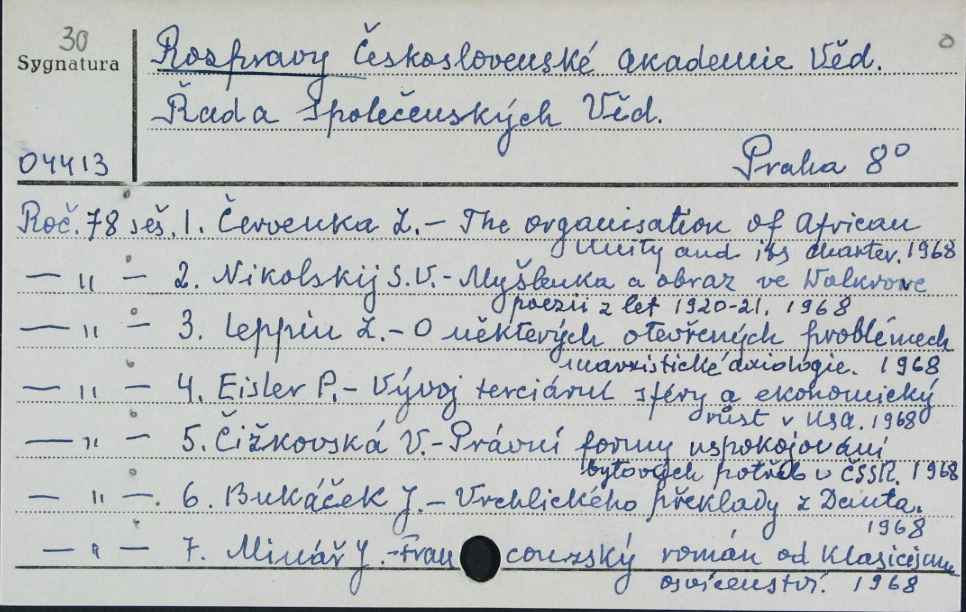 30
Sygnatura
04413
Rozpravy Československé akademie Věd.
Řada Společenských Věd.
Praha 8°
Roč. 78 seš. 1. Červenka Z. – The organisation of African
Unity and its charter. 1968
— " — 2. Nikolskij S.V. – Myšlenka a obraz ve Wolkrove
poezii z let 1920-21. 1968
— " — 3. Leppin Z. – O některých otevřených problémech
marxistické axiologie. 1968
— " — 4. Eisler P. – Vývoj terciární sféry a ekonomický
růst v USA. 1968
— " — 5. Čížkovská V. – Právní formy uspokojování
bytových potřeb v ČSSR. 1968
— " — 6. Bukáček J. – Vrchlického překlady z Danta.
1968
— " — 7. Minář J. – Francouzský román od klasicismu
osvícenství. 1968